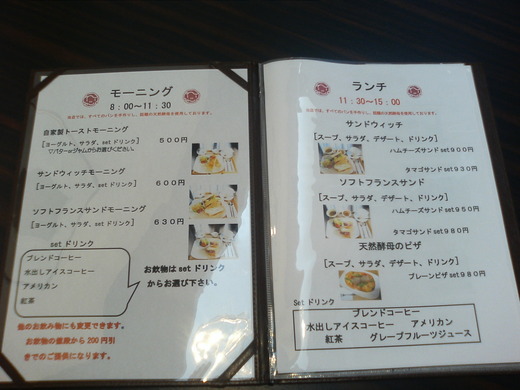 モーニング
8:00～11:30
自家製トーストモーニング
[ヨーグルト、サラダ、setドリンク] 500円
♡バターorジャムからお選びください。
サンドウィッチモーニング
[ヨーグルト、サラダ、setドリンク] 600円
ソフトフランスサンドモーニング
[ヨーグルト、サラダ、setドリンク] 630円
setドリンク
ブレンドコーヒー
水出しアイスコーヒー
アメリカン
紅茶
お飲物はsetドリンク
からお選び下さい。
他のお飲み物にも変更できます。
お飲物の価格から200円引
きでのご提供になります。
ランチ
11:30～15:00
サンドウィッチ
[スープ、サラダ、デザート、ドリンク]
ハムチーズサンドset900円
タマゴサンドset930円
ソフトフランスサンド
[スープ、サラダ、デザート、ドリンク]
ハムチーズサンドset950円
タマゴサンドset980円
天然酵母のピザ
[スープ、サラダ、デザート、ドリンク]
プレーンピザset980円
Setドリンク
ブレンドコーヒー
水出しアイスコーヒー アメリカン
紅茶 グレープフルーツジュース